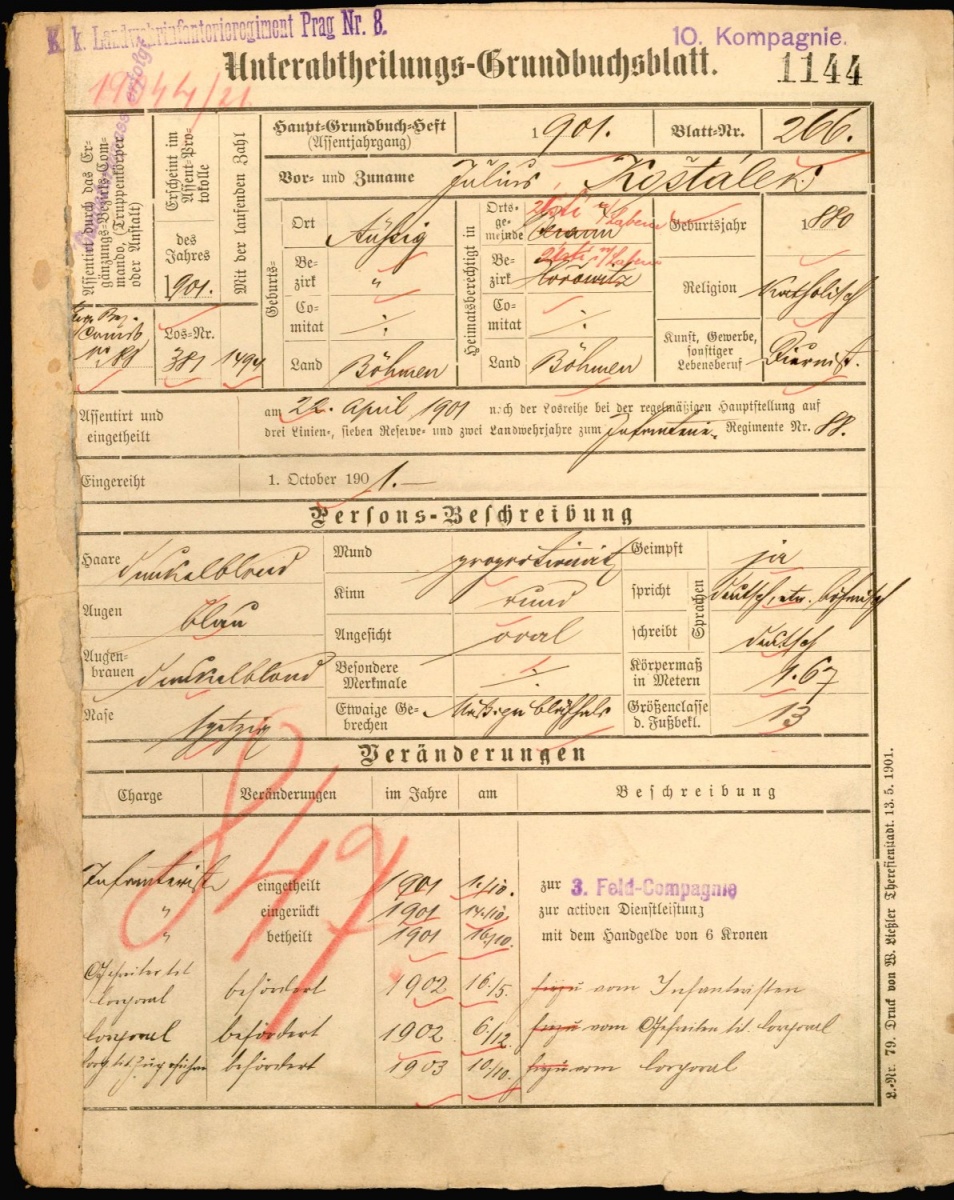 K. k. Landwehrinfanterieregiment Prag Nr. 8.
10. Kompagnie.
Unterabtheilungs-Grundbuchsblatt.
1144
Assentirt durch das Er-
gänzungs-Bezirks-Com-
mando, (Truppenkörper
oder Anstalt)
Erscheint im
Assent-Pro-
tokolle
des
Jahres
1901.
Mit der laufenden Zahl
Los-Nr.
381
1494
Haupt-Grundbuch-Heft
(Assentjahrgang)
1901.
Blatt-Nr.
266.
Vor- und Zuname
Julius Košťálek
Geburts-
Ort
Aussig
Be-
zirk
"
Co-
mitat
Land
Böhmen
Heimatsberechtigt in
Orts-
ge-
meinde
Be-
zirk
Hořowitz
Co-
mitat
Land
Böhmen
Geburtsjahr
1880
Religion
Katholisch
Kunst, Gewerbe,
sonstiger
Lebensberuf
Diurnist.
Assentirt und
eingetheilt
am 22. April 1901 nach der Losreihe bei der regelmäßigen Hauptstellung auf
drei Linien-, sieben Reserve- und zwei Landwehrjahre zum Infanterie- Regimente Nr. 88.
Eingereiht
1. October 1901.
Persons-Beschreibung
Haare
dunkelblond
Augen
blau
Augen-
brauen
dunkelblond
Nase
spitzig
Mund
proportionirt
Kinn
rund
Angesicht
oval
Besondere
Merkmale
Etwaige Ge-
brechen
Geimpft
ja
spricht
Sprachen
deutsch, etw. böhmisch
schreibt
deutsch
Körpermaß
in Metern
1.67
Größenclasse
d. Fußbekl.
13
Veränderungen
Charge Veränderungen im Jahre am Beschreibung
Infanterist eingetheilt 1901 1./10. zur 3. Feld-Compagnie
" eingerückt 1901 zur activen Dienstleistung
" betheilt 1901 16/10. mit dem Handgelde von 6 Kronen
Gefreiter tit.
Corporal befördert 1902 16./5. vom Infanteristen
Corporal befördert 1902 6./12. vom Gefreiten tit. Corporal
Corp. tit. Zugsführer befördert 1903 10/10. vom Corporal
L.-Nr. 79. Druck von W. Ließler Theresienstadt. 13. 5. 1901.